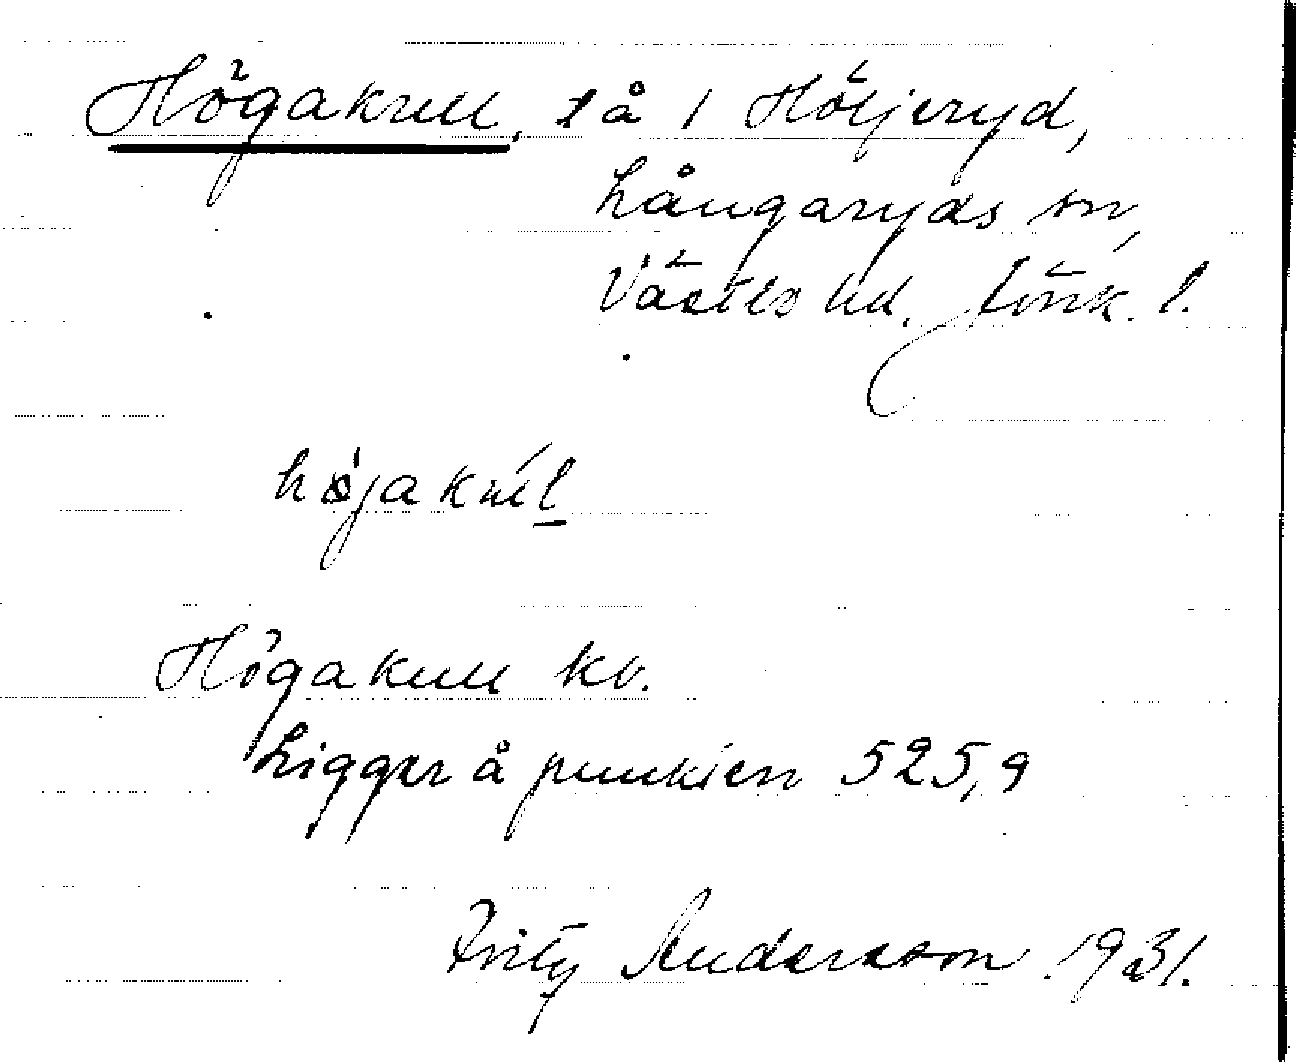 Högakull, lå 1 Höljeryd,
Långaryds sn,
Västbo hd. Jönk. l.
höjakul
Högakull kv.
Ligger å punkten 525,9
Fritz Andersson 1931.